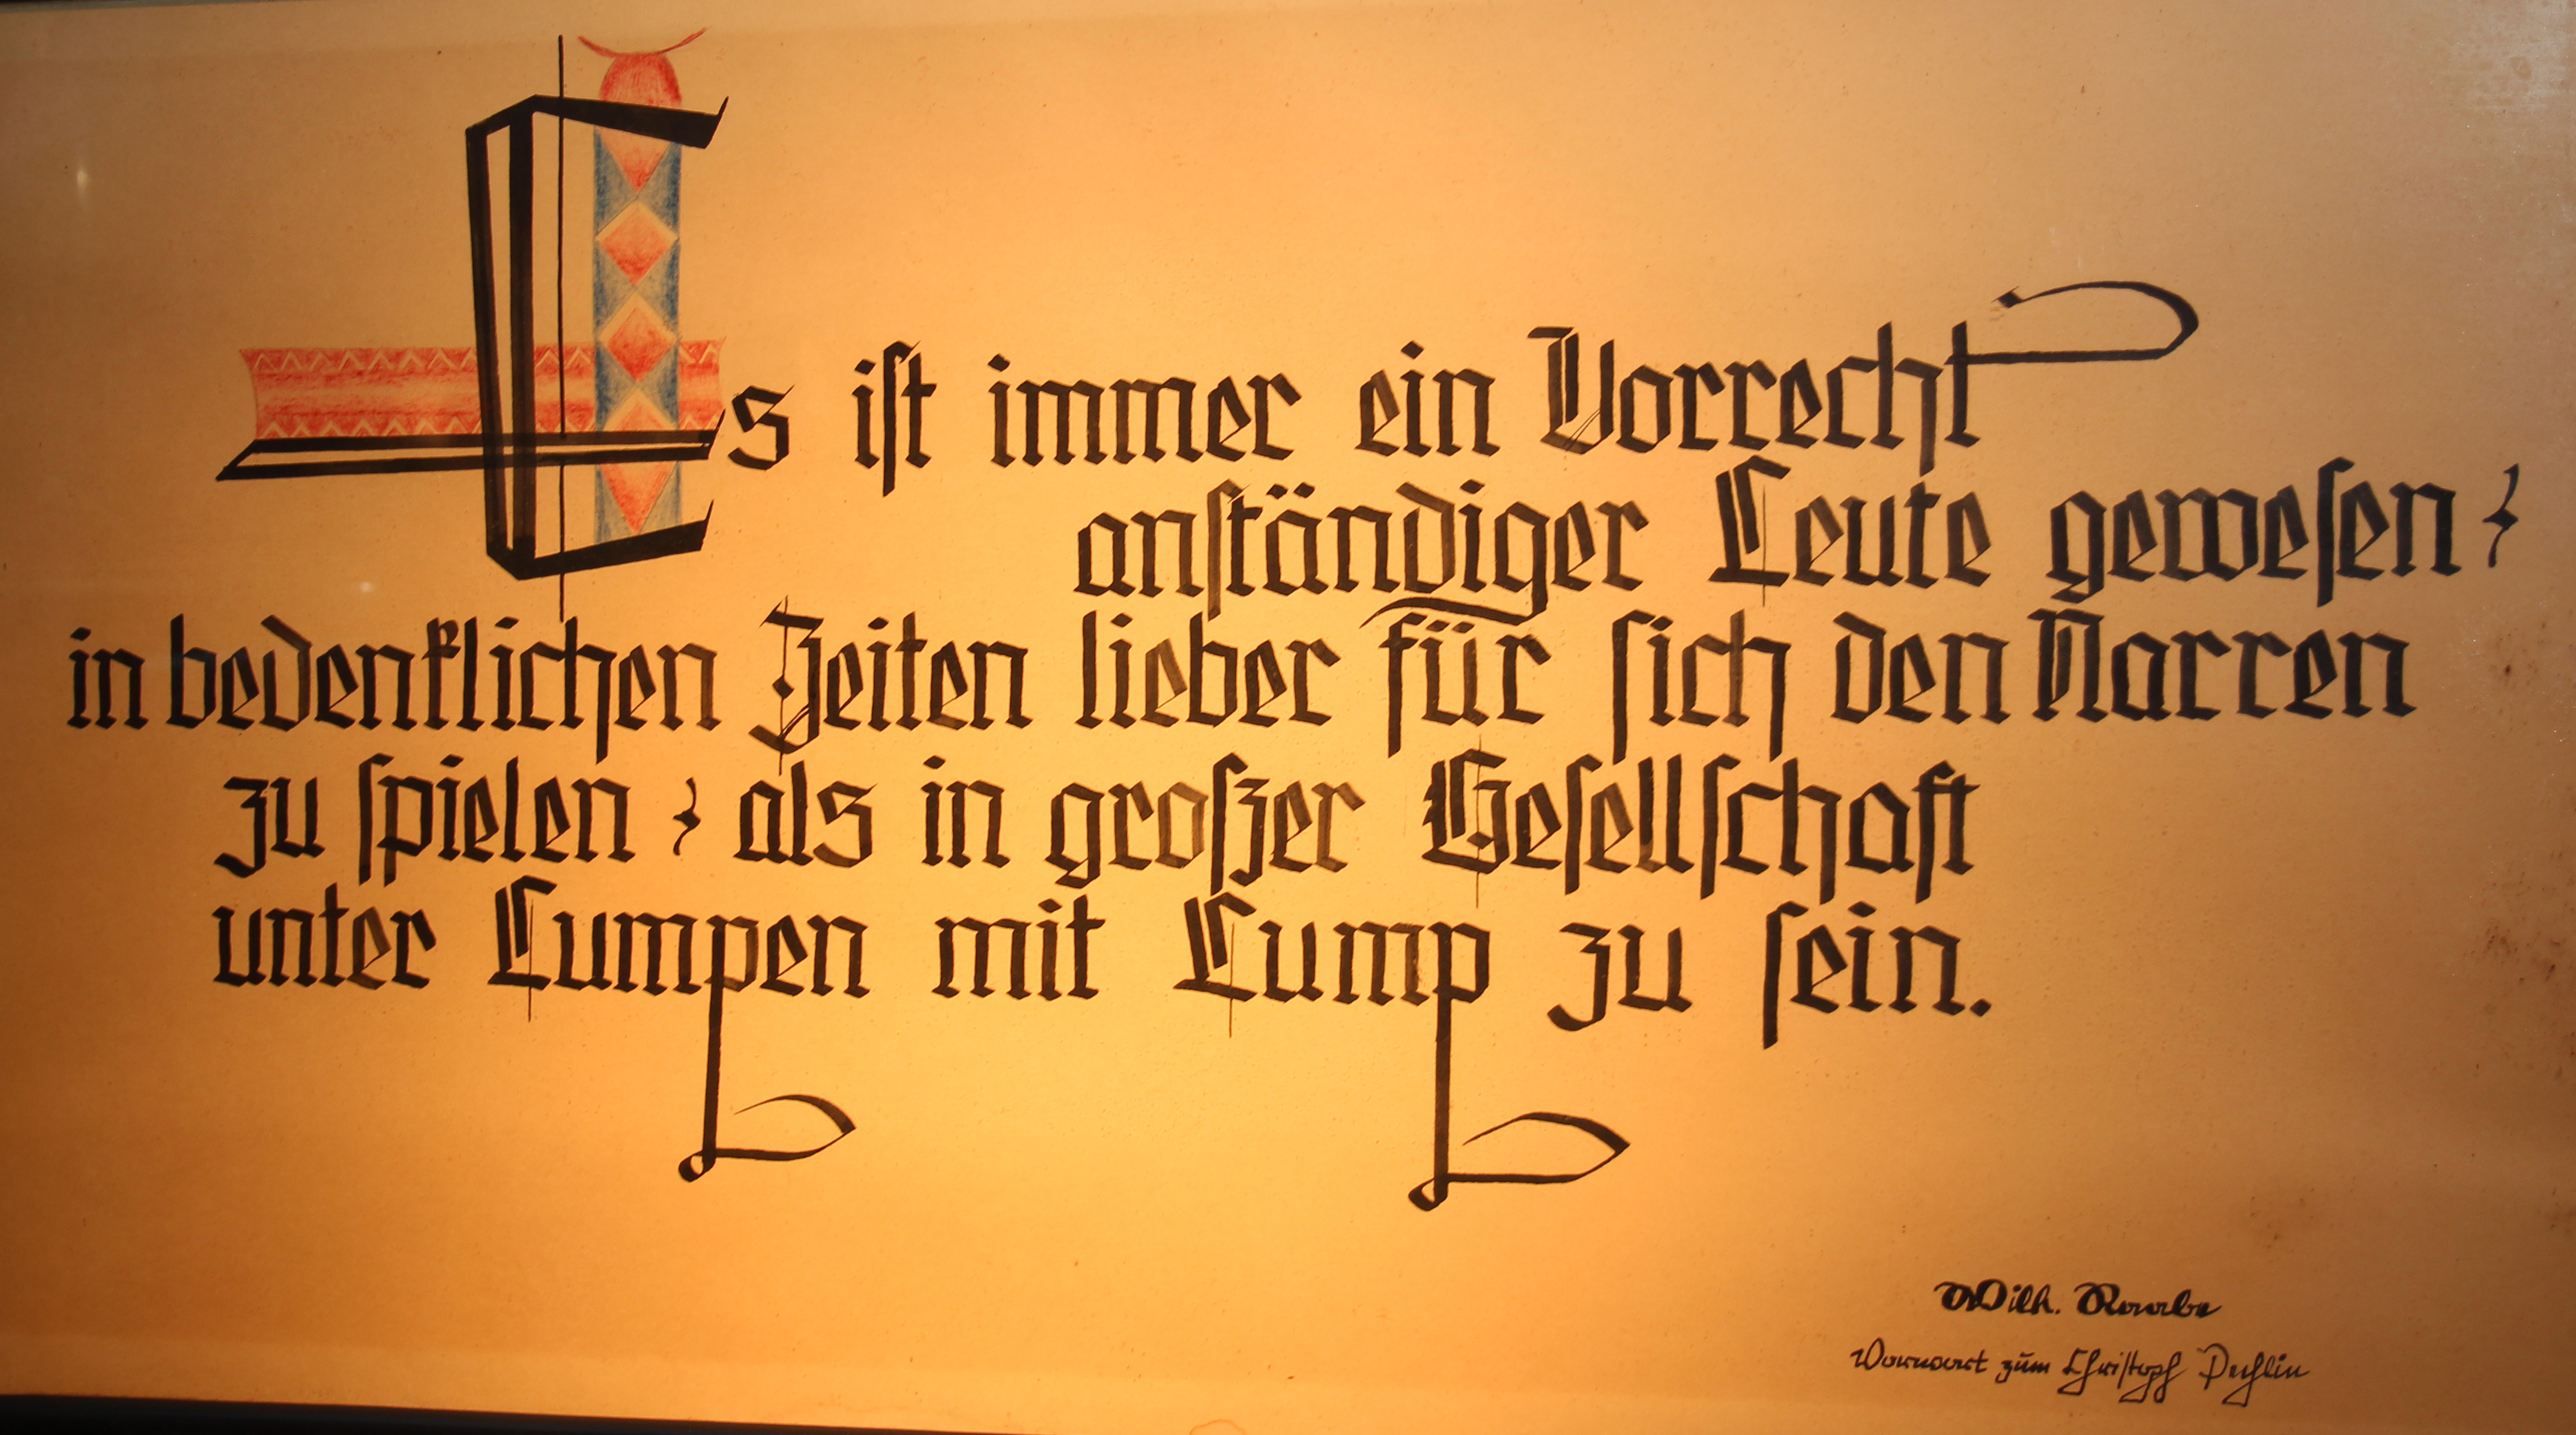 Es iſt immer ein Vorrecht
anſtändiger Leute geweſen,
in bedenklichen Zeiten lieber für ſich den Narren
zu ſpielen, als in großer Geſellſchaft
unter Lumpen mit Lump zu ſein.
Wilh. Raabe
Vorwort zum Chriſtoph Pechlin